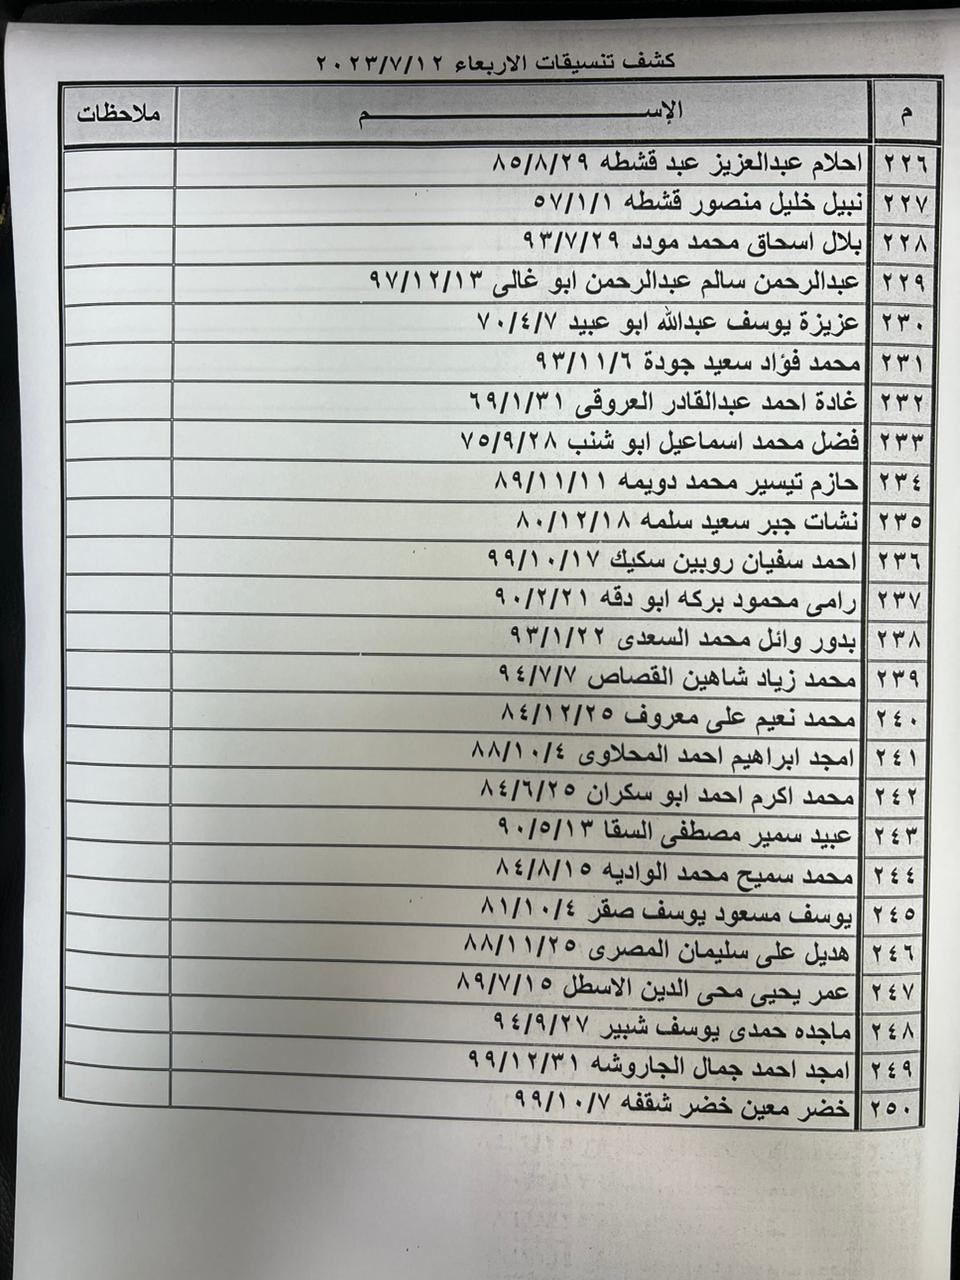 كشف تنسيقات الاربعاء ٢٠٢٣/٧/١٢
م الإســـــــــم ملاحظات
٢٢٦ احلام عبدالعزيز عبد قشطه ٨٥/٨/٢٩
٢٢٧ نبيل خليل منصور قشطه ٥٧/١/١
٢٢٨ بلال اسحاق محمد مودد ٩٣/٧/٢٩
٢٢٩ عبدالرحمن سالم عبدالرحمن ابو غالى ٩٧/١٢/١٣
٢٣٠ عزيزة يوسف عبدالله ابو عبيد ٧٠/٤/٧
٢٣١ محمد فؤاد سعيد جودة ٩٣/١١/٦
٢٣٢ غادة احمد عبدالقادر العروقى ٦٩/١/٣١
٢٣٣ فضل محمد اسماعيل ابو شنب ٧٥/٩/٢٨
٢٣٤ حازم تيسير محمد دويمه ٨٩/١١/١١
٢٣٥ نشات جبر سعيد سلمه ٨٠/١٢/١٨
٢٣٦ احمد سفيان روبين سكيك ٩٩/١٠/١٧
٢٣٧ رامى محمود بركه ابو دقه ٩٠/٢/٢١
٢٣٨ بدور وائل محمد السعدى ٩٣/١/٢٢
٢٣٩ محمد زياد شاهين القصاص ٩٤/٧/٧
٢٤٠ محمد نعيم على معروف ٨٤/١٢/٢٥
٢٤١ امجد ابراهيم احمد المحلاوى ٨٨/١٠/٤
٢٤٢ محمد اكرم احمد ابو سكران ٨٤/٦/٢٥
٢٤٣ عبيد سمير مصطفى السقا ٩٠/٥/١٣
٢٤٤ محمد سميح محمد الواديه ٨٤/٨/١٥
٢٤٥ يوسف مسعود يوسف صقر ٨١/١٠/٤
٢٤٦ هديل على سليمان المصرى ٨٨/١١/٢٥
٢٤٧ عمر يحيى محى الدين الاسطل ٨٩/٧/١٥
٢٤٨ ماجده حمدى يوسف شبير ٩٤/٩/٢٧
٢٤٩ امجد احمد جمال الجاروشه ٩٩/١٢/٣١
٢٥٠ خضر معين خضر شقفه ٩٩/١٠/٧